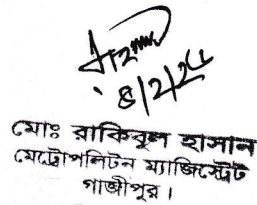 ৪/২/২৫
মোঃ রাকিবুল হাসান
মেট্রোপলিটন ম্যাজিস্ট্রেট
গাজীপুর।